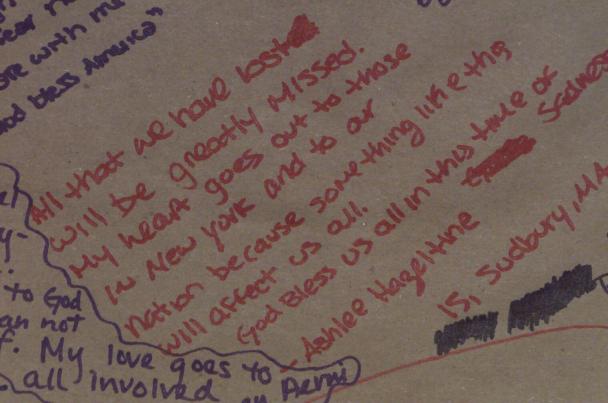 ore with me
God bless America"
All that we have lost
will be greatly missed.
My heart goes out to those
in New York and to our
nation because something like this
will affect us all.
God Bless us all in this time of
Sadness
- Ashlee Hazeltine
15, Sudbury, MA
to God
an not
My love goes to
all involved